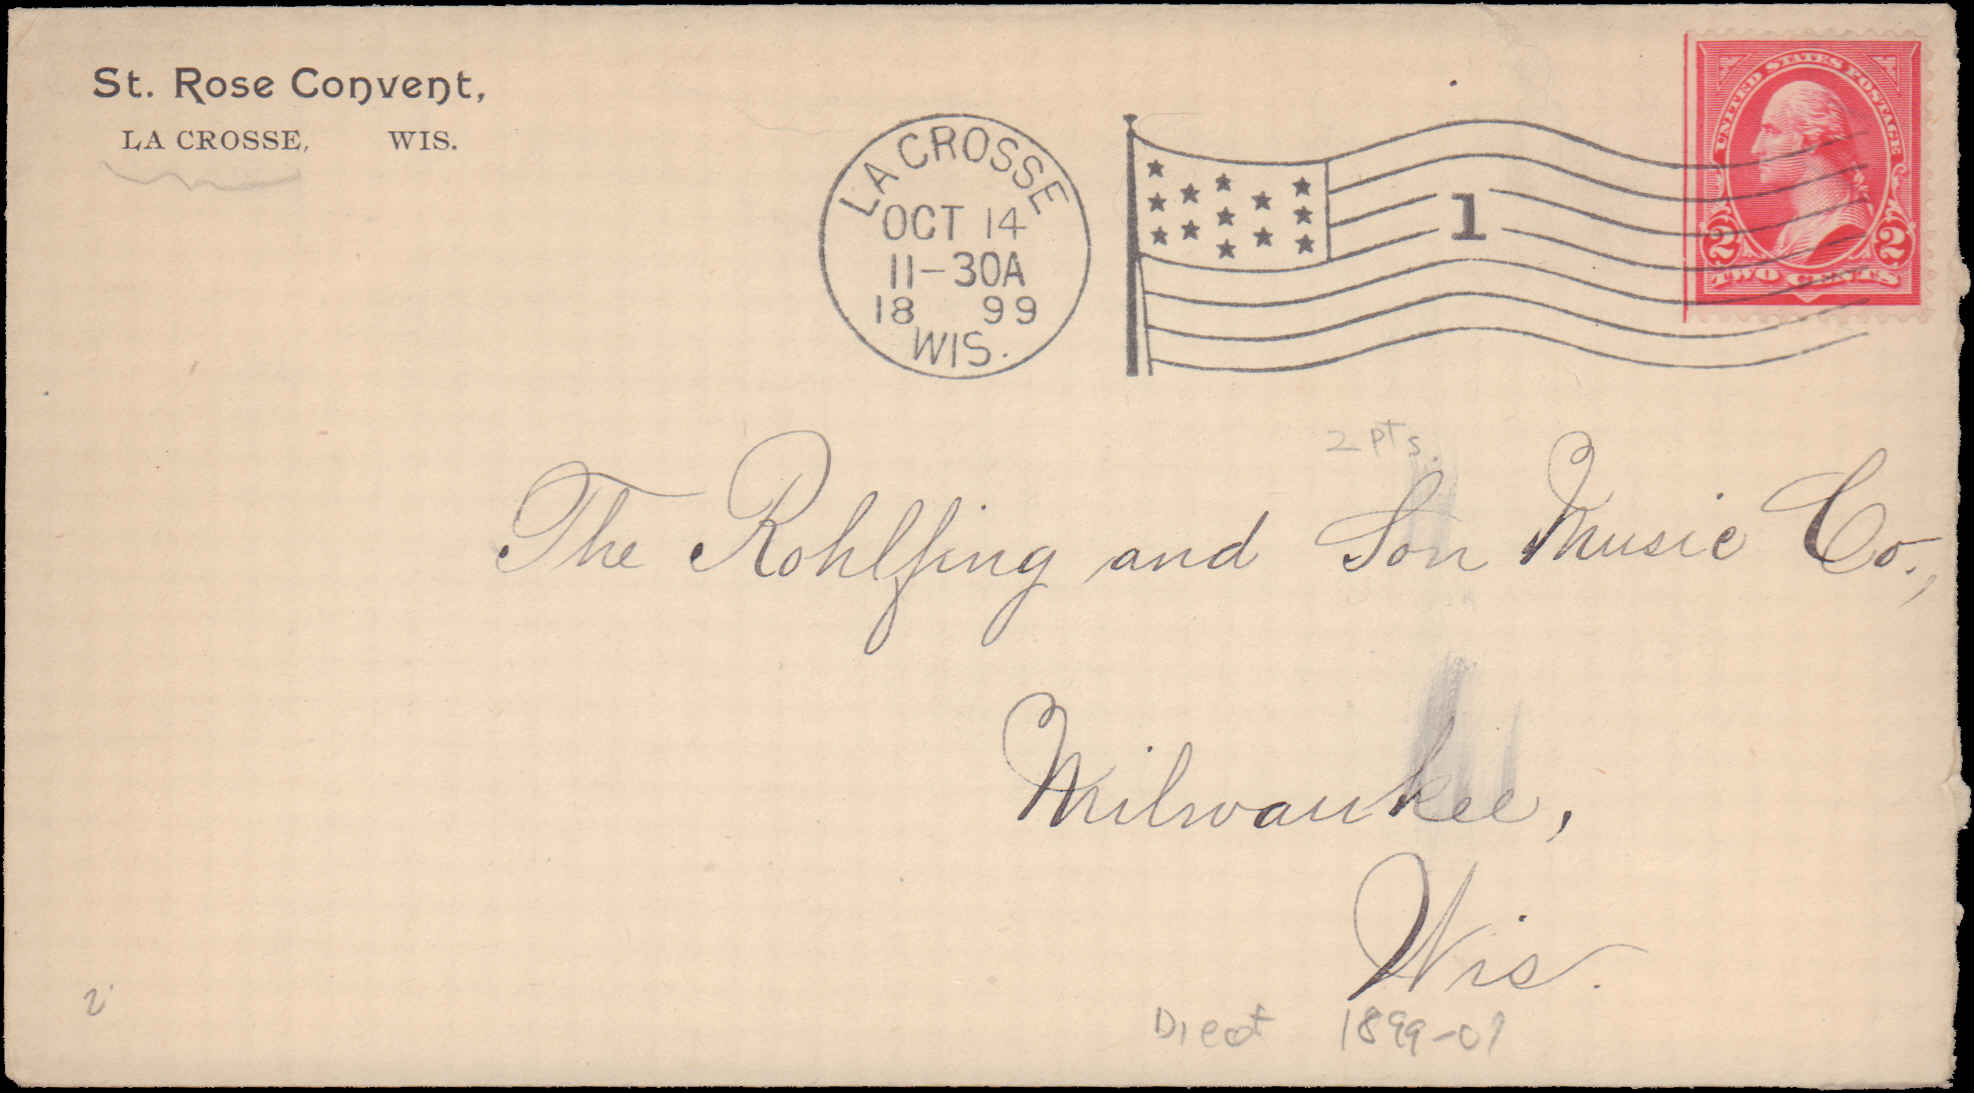 St. Rose Convent,
LA CROSSE, WIS.
LA CROSSE
OCT 14
11-30A
18 99
WIS.
1
UNITED STATES POSTAGE
2 2
TWO CENTS
2 pts.
The Rohlfing and Son Music Co.,
Milwaukee,
Wis.
2
1899-01